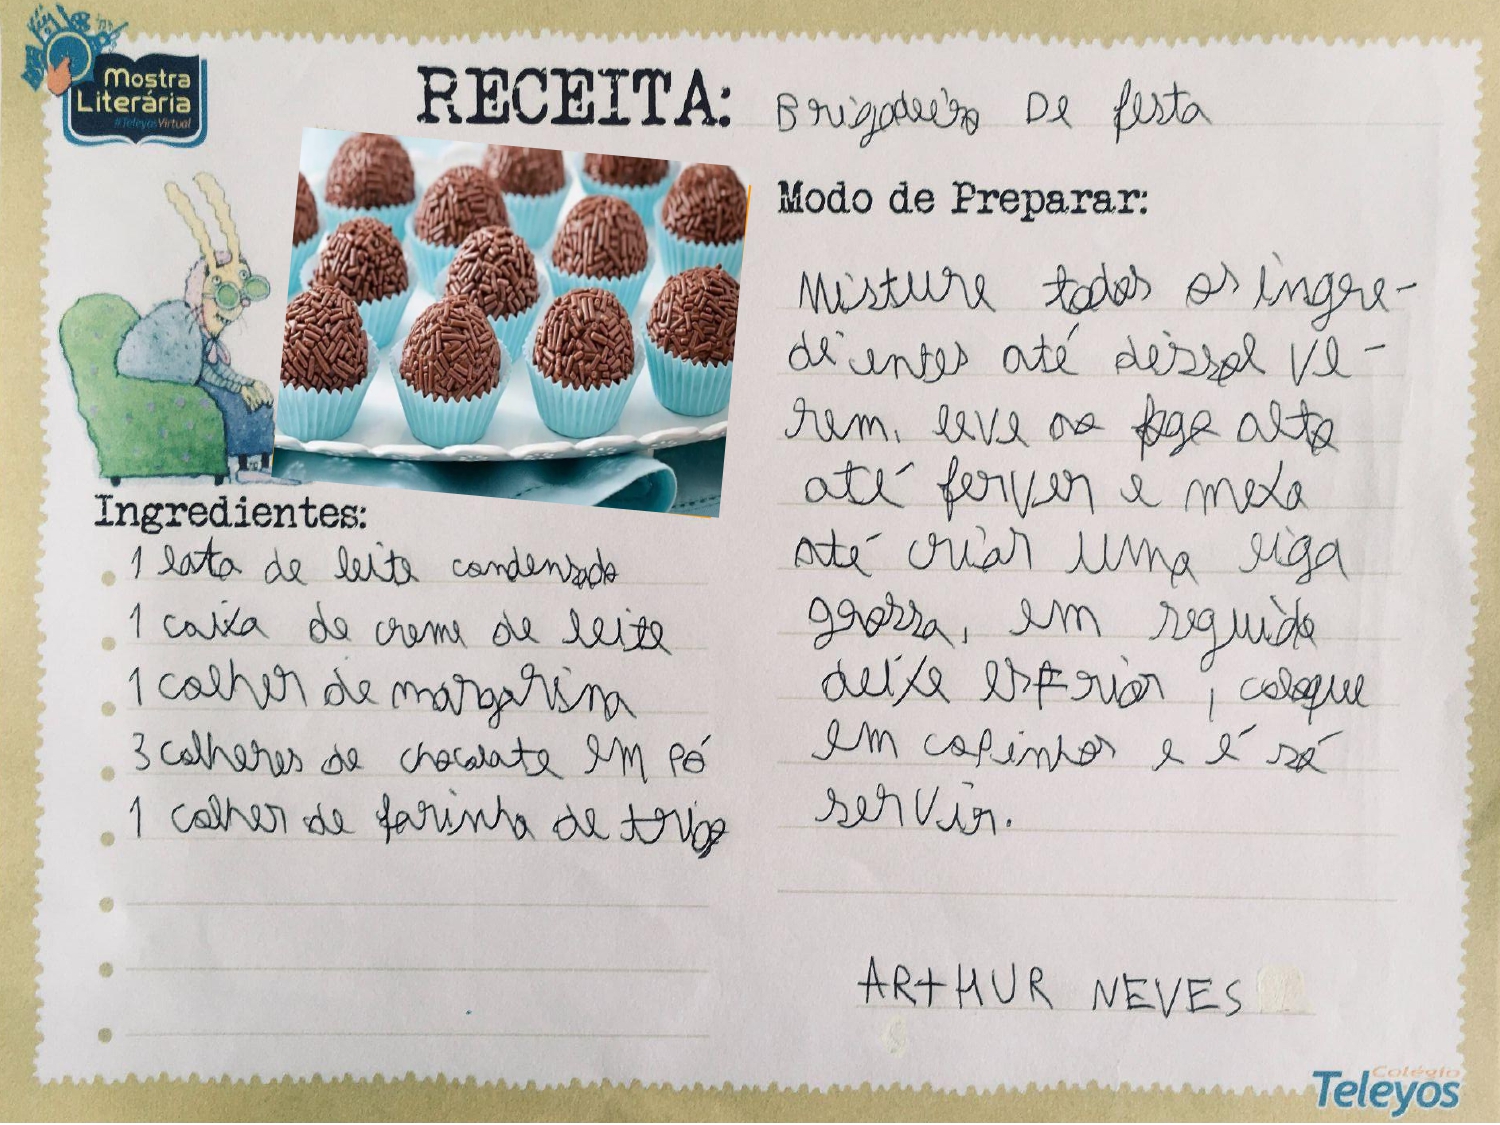 Mostra
Literária
#TeleyosVirtual
RECEITA: Brigadeiro De festa
Ingredientes:
1 lata de leite condensado
1 caixa de creme de leite
1 colher de margarina
3 colheres de chocolate em pó
1 colher de farinha de trigo
Modo de Preparar:
Misture todos os ingre-
dientes até dissol ve-
rem, leve ao fogo alto
até ferver e mexa
até criar uma liga
grossa, em seguida
deixe esfriar, coloque
em copinhos e é só
servir.
ARTHUR NEVES
Colégio
Teleyos